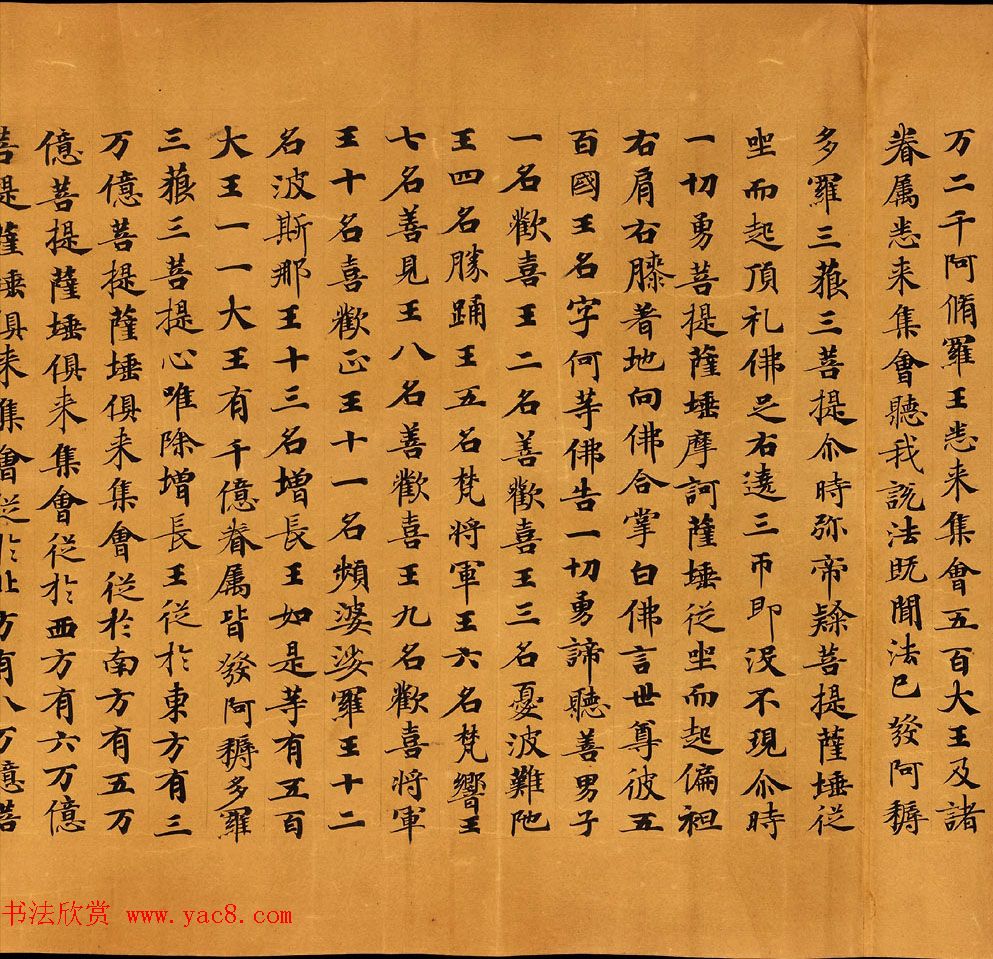 万二千阿脩羅王悉来集會五百大王及諸
眷属悉来集會聽我說法既聞法已發阿耨
多羅三藐三菩提尒時弥帝隸菩提薩埵従
坐而起頂礼佛足右遶三帀即没不現尒時
一切勇菩提薩埵摩訶薩埵従坐而起偏袒
右肩右膝著地向佛合掌白佛言世尊彼五
百國王名字何等佛告一切勇諦聽善男子
一名歡喜王二名善歡喜王三名憂波難陁
王四名勝踊王五名梵将軍王六名梵響王
七名善見王八名善歡喜王九名歡喜将軍
王十名喜歡正王十一名頻婆娑羅王十二
名波斯那王十三名增長王如是等有五百
大王一一大王有千億眷属皆發阿耨多羅
三藐三菩提心唯除增長王従於東方有三
万億菩提薩埵俱来集會従於南方有五万
億菩提薩埵俱来集會従於西方有六万億
菩提薩埵俱来集會従於北方有八万億菩
书法欣赏 www.yac8.com